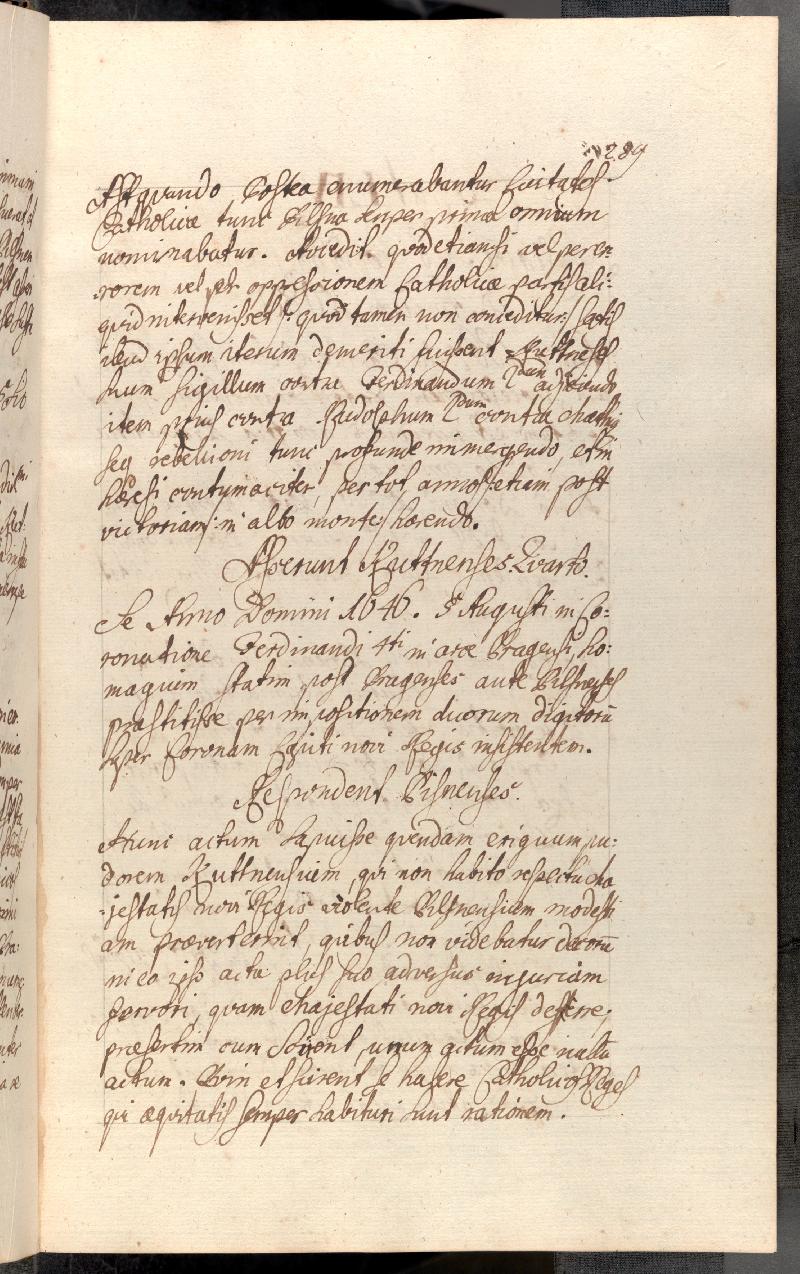 289
Ast quando Postea enumerabantur Civitates
Catholicæ tunc Pilsna semper prima omnium
nominabatur. Accedit quod etiamsi vel per er:
rorem vel per oppressionem Catholicæ partis ali:
quid intervenisset /: quod tamen non conceditur :/ satis
illud ipsum iterum demeriti fuissent Kuttnenses
suum sigillum contra Ferdinandum 2dum adjiciendo
item prius contra Rudolphum 2dum contra Mathi
seq rebellioni tunc profunde immergendo, et in
hæresi contumaciter per tot annos /: etiam post
victoriam :/ in albo monte hærendo.
Asserunt Kuttnenses. Quarto.
Se Anno Domini 1646. 5 Augusti in Co:
ronatione Ferdinandi 4ti in arce Pragensi, ho:
magium statim post Pragenses ante Pilsnenses
præstitisse per impositionem duorum digitorū
super Coronam Capiti novi Regis insistentem.
Respondent Pilsnenses.
Hunc actum sapuisse quendam exiguum pu:
dorem Kuttnensium, qui non habito respectu Ma
:jestatis novi Regis violente Pilsnensium modesti
am præverterint, quibus non videbatur decorū
in eo ipso actu plus suo adversus injuriam
fervori, quam Majestati novi Regis deferre,
præsertim cum scirent, unum actum esse nullū
actum. Quin et scirent se habere Catholicos Reges
qui æquitatis semper habituri sunt rationem.